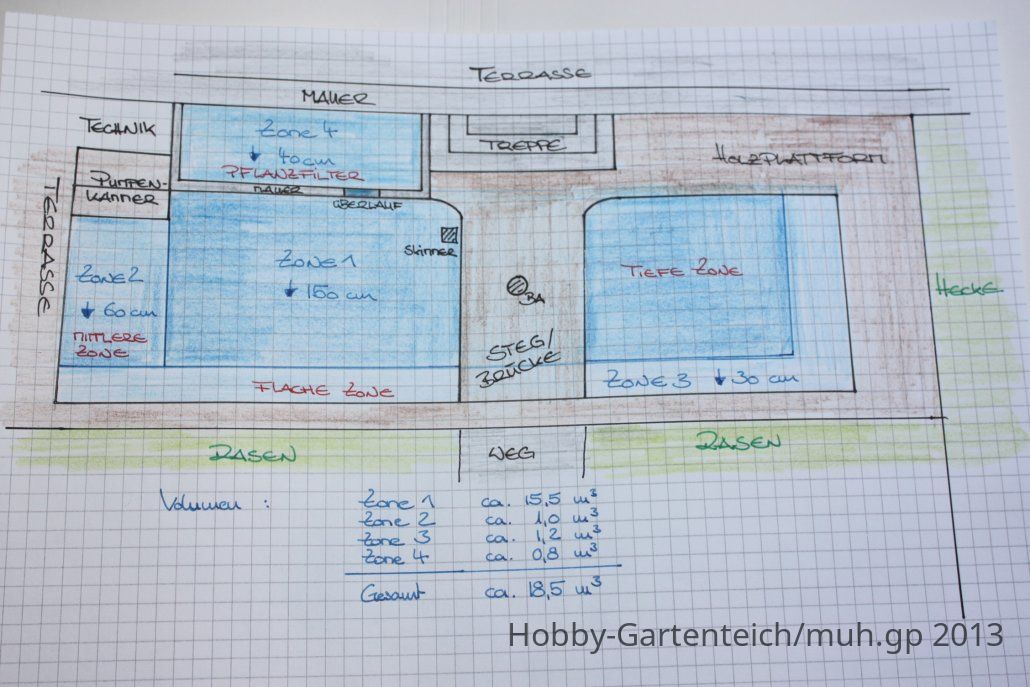 TERRASSE
MAUER
TECHNIK
Zone 4
↓ 40 cm
PFLANZFILTER
TREPPE
HOLZPLATTFORM
PUMPEN-
KAMMER
MAUER
ÜBERLAUF
TERRASSE
Skimmer
ZONE 1
↓ 150 cm
ZONE 2
↓ 60 cm
MITTLERE
ZONE
TIEFE ZONE
BA
HECKE
STEG/
BRÜCKE
FLACHE ZONE
ZONE 3 ↓ 30 cm
RASEN
WEG
RASEN
Volumen : Zone 1 ca. 15,5 m³
Zone 2 ca. 1,0 m³
Zone 3 ca. 1,2 m³
Zone 4 ca. 0,8 m³
Gesamt ca. 18,5 m³
Hobby-Gartenteich/muh.gp 2013